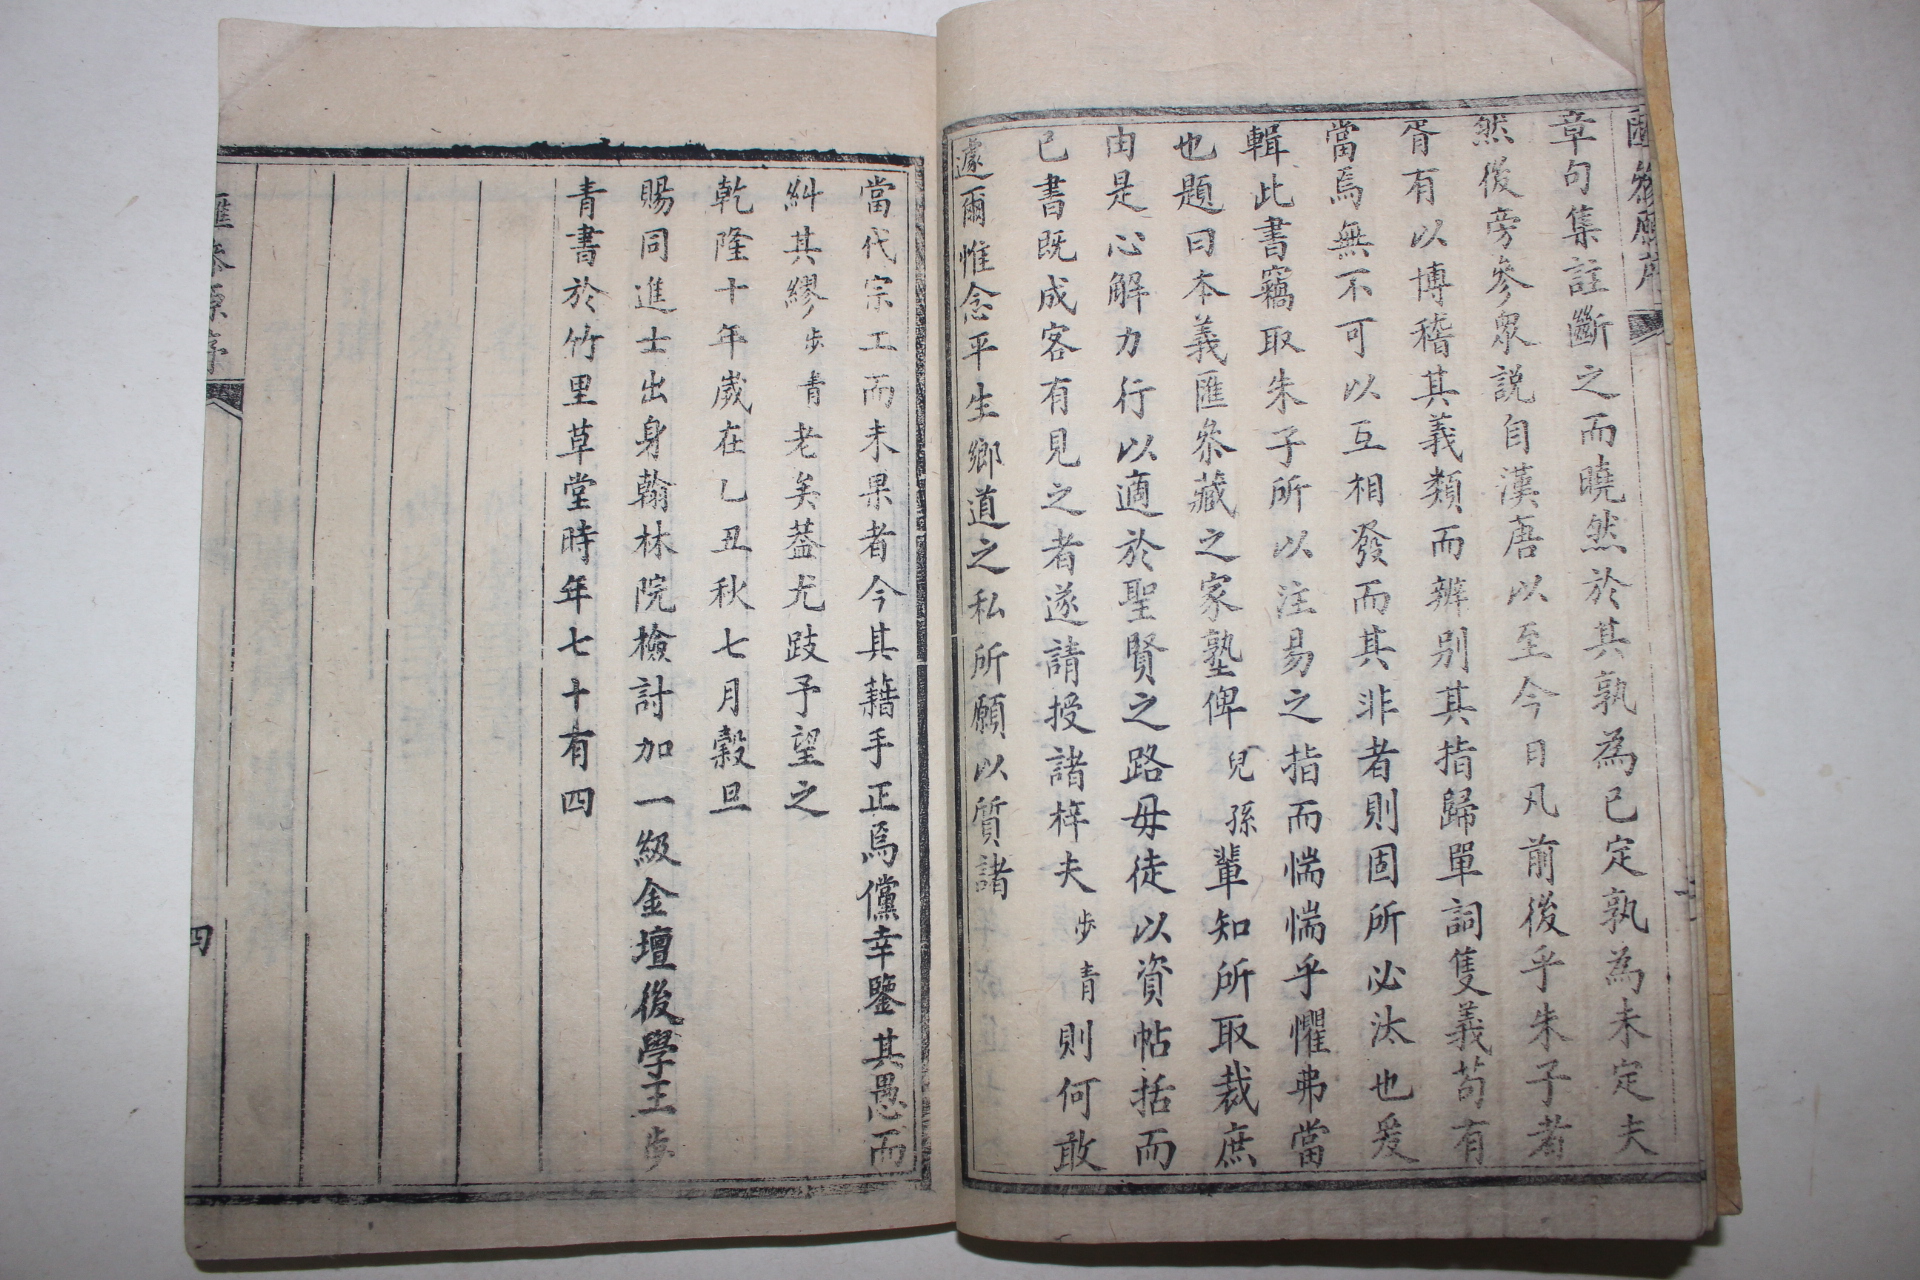 章句集註斷之而曉然於其孰為已定孰為未定夫
然後旁參衆說自漢唐以至今日凡前後乎朱子者
胥有以博稽其義類而辨別其指歸單詞隻義苟有
當焉無不可以互相發而其非者則固所必汰也爰
輯此書竊取朱子所以注易之指而惴惴乎懼弗當
也題曰本義匯叅藏之家塾俾兒孫輩知所取裁庶
由是心解力行以適於聖賢之路毋徒以資帖括而
已書既成客有見之者遂請授諸梓夫步青則何敢
遽爾惟念平生鄉道之私所願以質諸
當代宗工而未果者今其藉手正焉儻幸鑒其愚而
糾其繆步青老矣葢尤跂予望之
乾隆十年歲在乙丑秋七月穀旦
賜同進士出身翰林院檢討加一級金壇後學王步
青書於竹里草堂時年七十有四
匯叅原序
四